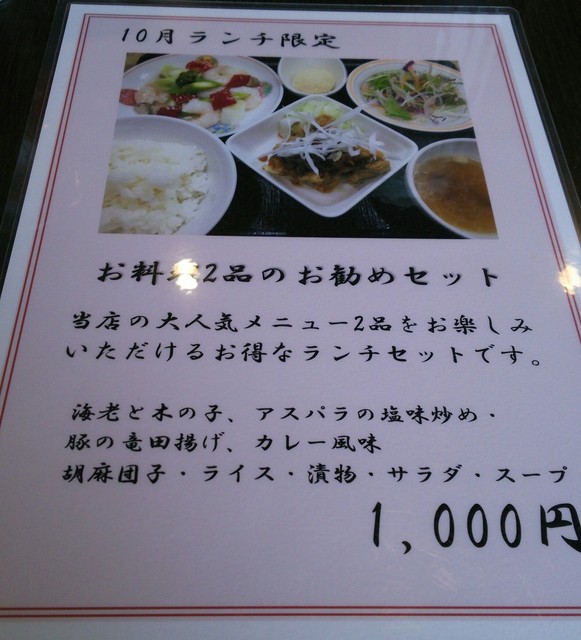 10月ランチ限定
お料理2品のお勧めセット
当店の大人気メニュー2品をお楽しみ
いただけるお得なランチセットです。
海老と木の子、アスパラの塩味炒め・
豚の竜田揚げ、カレー風味
胡麻団子・ライス・漬物・サラダ・スープ
1,000円